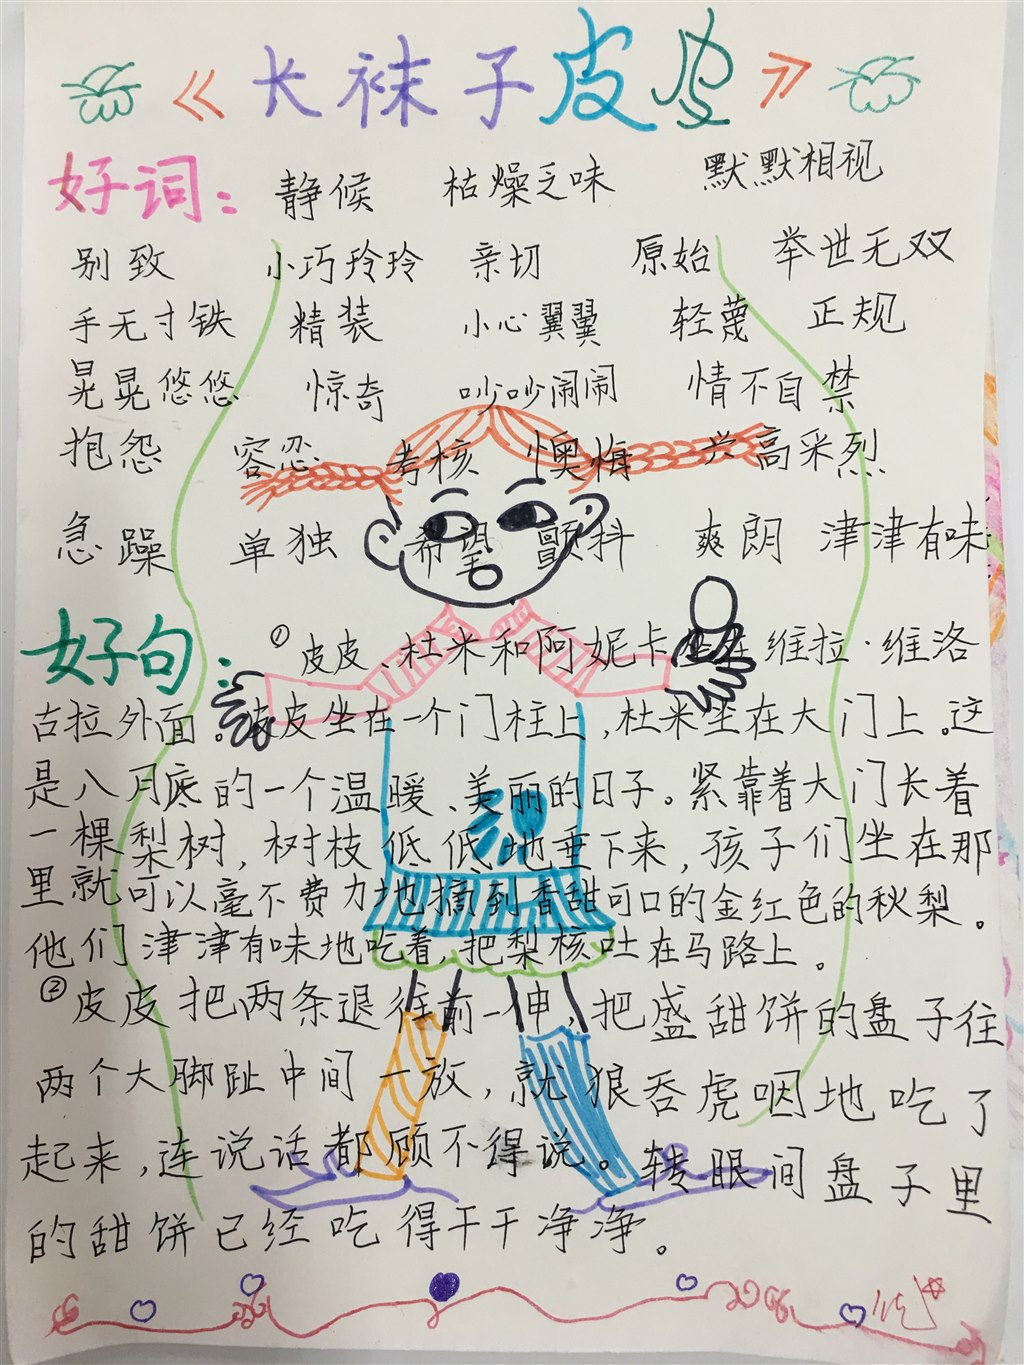 《长袜子皮皮》
好词：静候 枯燥乏味 默默相视
别致 小巧玲玲 亲切 原始 举世无双
手无寸铁 精装 小心翼翼 轻蔑 正规
晃晃悠悠 惊奇 吵吵闹闹 情不自禁
抱怨 容忍 考核 懊悔 兴高采烈
急躁 单独 希望 颤抖 爽朗 津津有味
好句：①皮皮、杜米和阿妮卡坐在维拉·维洛
古拉外面。皮皮坐在一个门柱上，杜米坐在大门上。这
是八月底的一个温暖、美丽的日子。紧靠着大门长着
一棵梨树，树枝低低地垂下来，孩子们坐在那
里就可以毫不费力地摘到香甜可口的金红色的秋梨。
他们津津有味地吃着，把梨核吐在马路上。
②皮皮把两条退往前一伸，把盛甜饼的盘子往
两个大脚趾中间一放，就狼吞虎咽地吃了
起来，连说话都顾不得说。转眼间盘子里
的甜饼已经吃得干干净净。